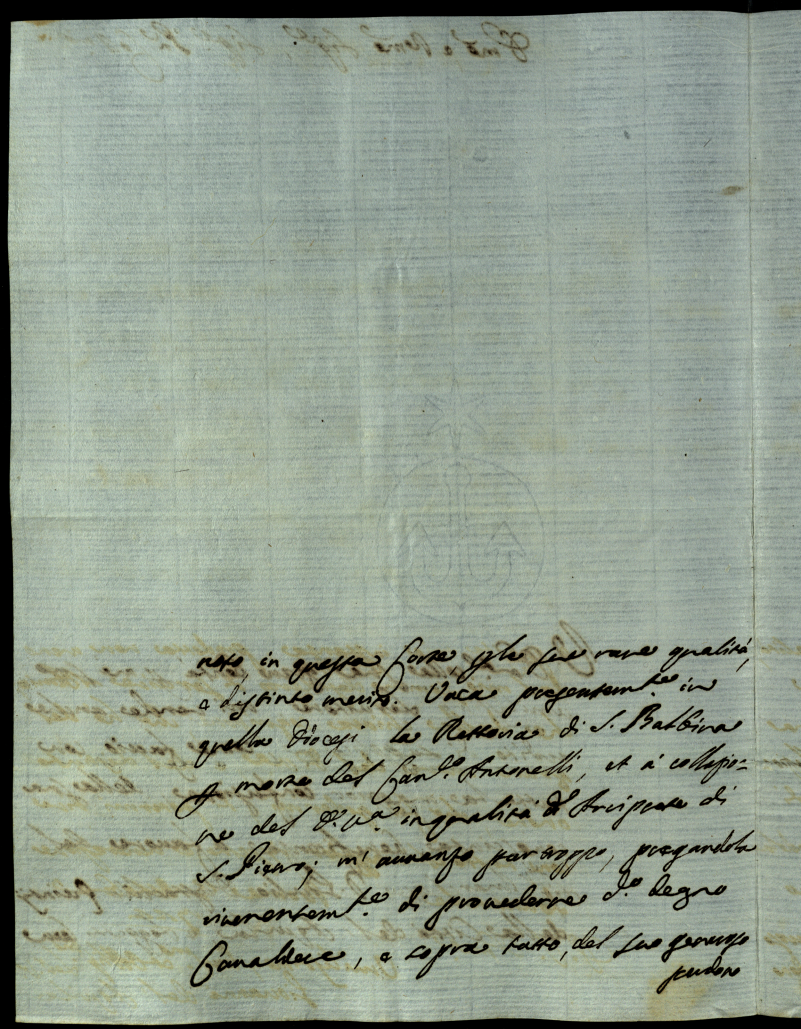 noto, in questa Corte p le sue rare qualità,
e distinto merito. Vaca presentem.te in
quella Diocesi la Rettoria di S. Balbina
p morte del Can.co Antonelli, et à collazio=
ne del in qualità d' Arciprete di
S. Pietro; m' avanzo per, pregandola
riverentem.te di provederne d.o degno
Cavaliere, e sopra tutto, del suo generoso
perdono